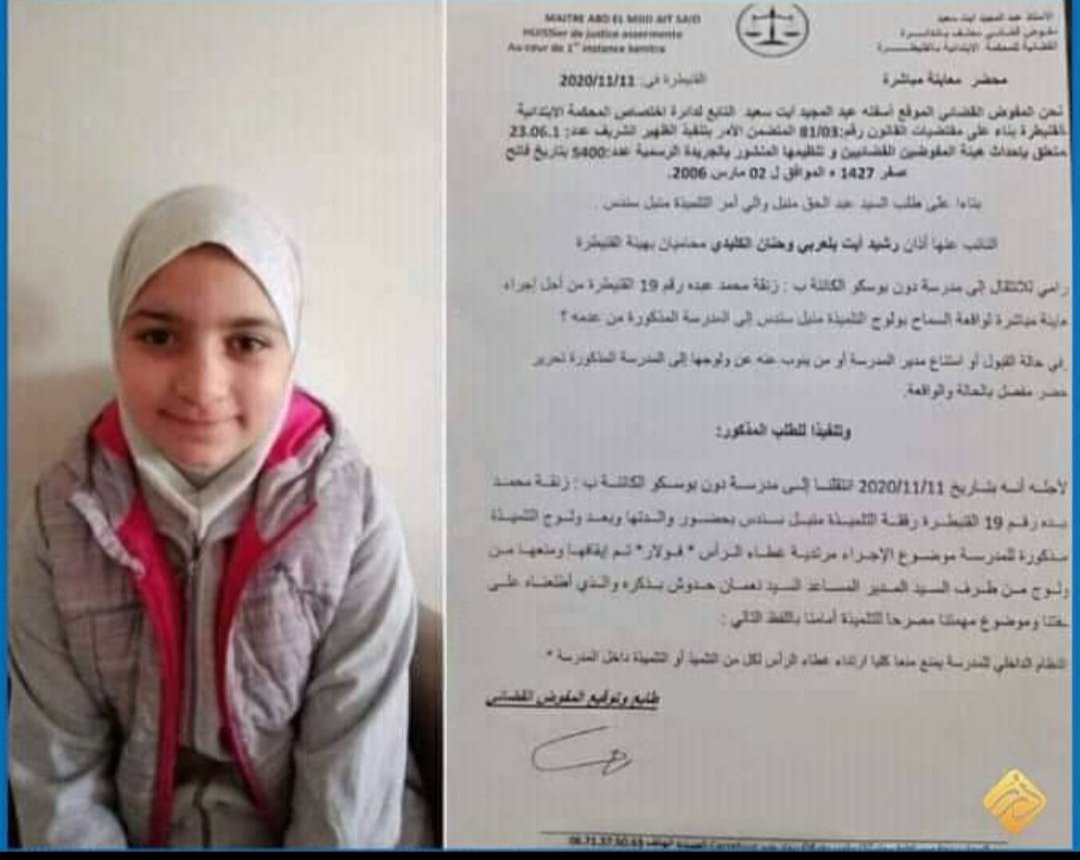 MAITRE ABD EL MJID AIT SAID
HUISSier de justice assermente
Au cour de 1er instance kenitra
الأستاذ عبد المجيد أيت سعيد
مفوض قضائي محلف بالدائرة
القضائية للمحكمة الابتدائية بالقنيطرة
محضر معاينة مباشرة
القنيطرة في: 2020/11/11
نحن المفوض القضائي الموقع أسفله عبد المجيد أيت سعيد التابع لدائرة اختصاص المحكمة الابتدائية
القنيطرة بناء على مقتضيات القانون رقم:81/03 المتضمن الأمر بتنفيذ الظهير الشريف عدد: 23.06.1
متعلق بإحداث هيئة المفوضين القضائيين و تنظيمها المنشور بالجريدة الرسمية عدد:5400 بتاريخ فاتح
صفر 1427 ه الموافق ل 02 مارس 2006.
بناءا على طلب السيد عبد الحق منيل والي أمر التلميذة منيل سندس .
النائب عنها أذان رشيد أيت بلعربي وحنان الكليدي محاميان بهيئة القنيطرة
رامي للانتقال إلى مدرسة دون بوسكو الكائنة ب : زنقة محمد عبده رقم 19 القنيطرة من أجل إجراء
ماينة مباشرة لواقعة السماح بولوج التلميذة منيل سندس إلى المدرسة المذكورة من عدمه ؟
في حالة القبول أو امتناع مدير المدرسة أو من ينوب عنه عن ولوجها إلى المدرسة المذكورة تحرير
حضر مفصل بالحالة والواقعة.
وتنفيذا للطلب المذكور:
لأجله أنه بتاريخ 2020/11/11 انتقلنا إلى مدرسة دون بوسكو الكائنة ب : زنقة محمد
بده رقم 19 القنيطرة رفقة التلميذة منيل سندس بحضور والدتها وبعد ولوج التلميذة
مذكورة للمدرسة موضوع الإجراء مرتدية غطاء الرأس " فولار" تم إيقافها ومنعها من
ولوج من طرف السيد المدير المساعد السيد نعمان حدوش بذكره والذي أطلعناه على
فتنا وموضوع مهمتنا مصرحا للتلميذة أمامنا باللفظ التالي :
النظام الداخلي للمدرسة يمنع منعا كليا ارتداء غطاء الرأس لكل من التلميذ أو التلميذة داخل المدرسة "
طابع وتوقيع المفوض القضائي